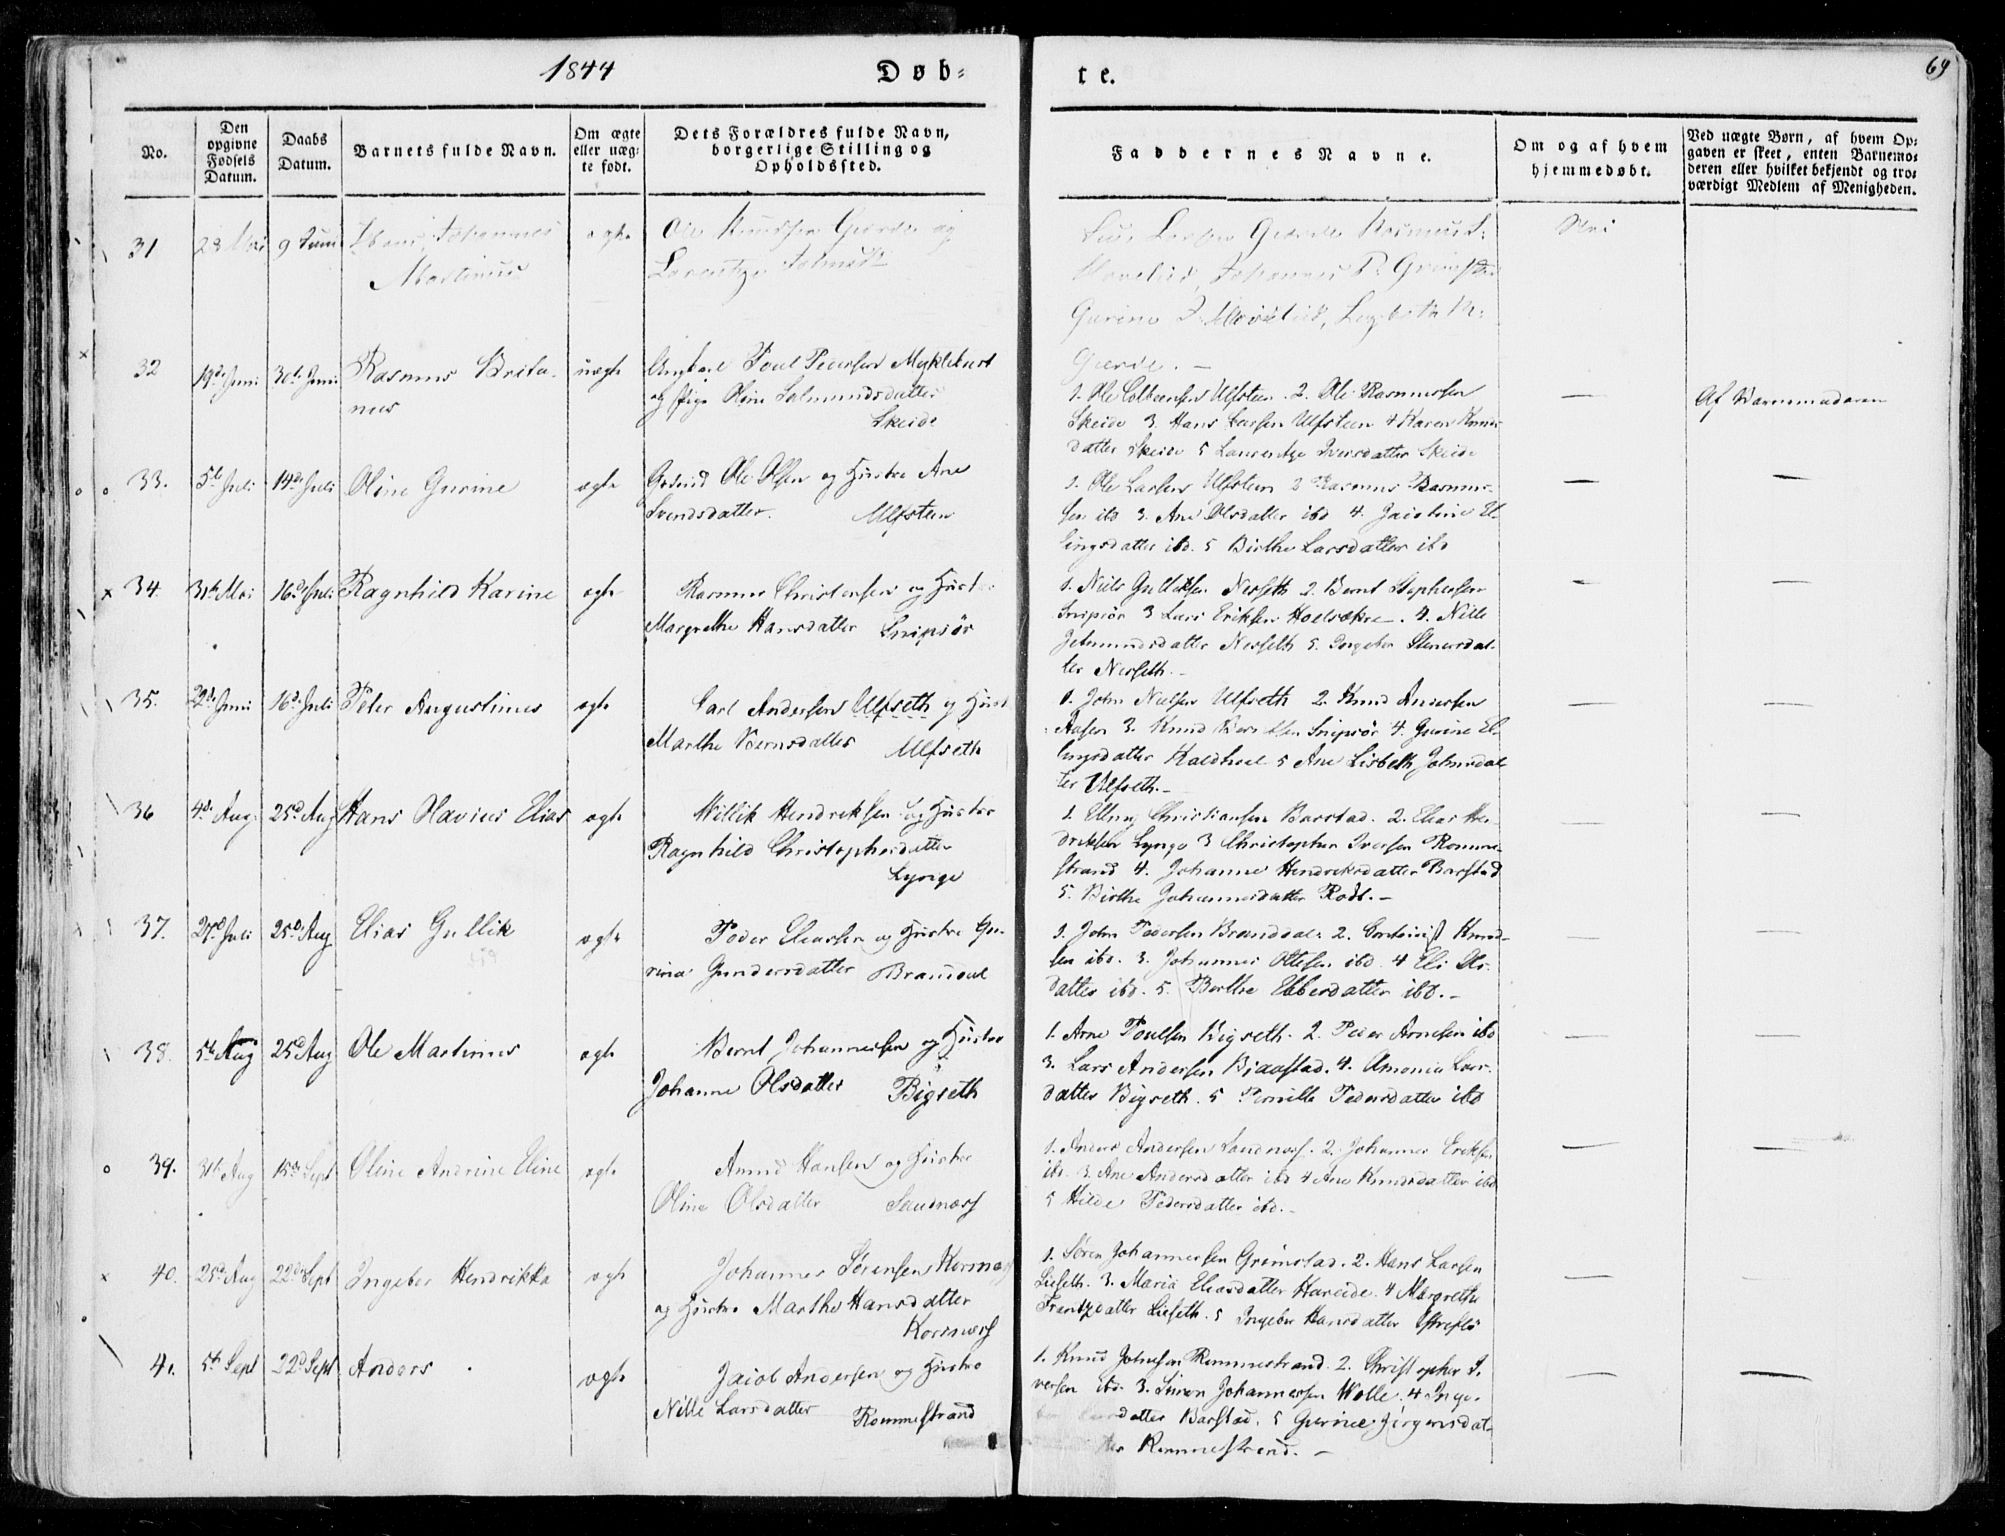 1844
Døb-
te.
69
No.
Den opgivne Fødsels Datum.
Daabs Datum.
Barnets fulde Navn.
Om ægte eller uæg-te født.
Dets Forældres fulde Navn, borgerlige Stilling og Opholdssted.
Faddernes Navne.
Om og af hvem hjemmedøbt.
Ved uægte Børn, af hvem Op-gaven er skeet, enten Barnemo-deren eller hvilket bekjendt og tro-værdigt Medlem af Menigheden.
31 28 Mai 9 Juni Johannes ægte Ole Knudsen Gjerde og
Martinus
Lars Larsen Gjerde Rasmus
Johannes P. Grimstad
Gurine
32 19d Juni 30te Juni Rasmus uægte Ungkarl Poul Pedersen Myklebust
nus og Pige Oline Salmundsdatter
Skeide
1. Ole Ulfsteen. 2. Ole Rasmussen
Skeide 3. Hans Larsen Ulfsteen 4 Karen Knuds-
datter Skeide 5 Laurentze Iversdatter Skeide
—
Af Barnemoderen
33. 5te Juli 14de Juli Oline Gurine ægte Ole Olsen og Hustru Ane
Svendsdatter. Ulfsteen
1. Ole Larsen Ulfsteen 2 Rasmus Rasmus-
sen ibd 3. Ane Olsdatter ibd 4. El-
lingsdatter ibd. 5 Birthe Larsdatter ibd
— —
34. 31te Mai 16d Juli Ragnhild Karine ægte Rasmus Christensen og Hustru
Margrethe Hansdatter Snipsør
1. Niels Gulliksen Nesseth 2. Bernt Stephensen
Snipsør 3 Lars Eriksen Holsækre. 4. Nille
Jetmundsdatter Nesseth 5. Ingeber Steensdat-
ter Nesseth.-
— —
35. 22de Juni 16d Juli Peter Augustinus ægte Carl Andersen Ulfseth og Hust
Marthe Berntsdatter Ulfseth
1. John Nielsen Ulfseth 2. Knud Andersen
Aasen 3. Knud Snipsør 4. Gurine El-
lingsdatter Kaldhol 5 Ane Lisbeth Johnsdat-
ter Ulfseth.-
— —
36 4de Aug. 25d Aug Hans Olavius Elias ægte Willik Hendriksen og Hustru
Ragnhild Christophersdatter
Lynge
1. Elling Christiansen Barstad. 2. Elias Hen-
driksen Lynge 3 Christopher Iversen Romme-
strand 4. Johanne Hendriksdatter Barstad
5. Birthe Johannesdatter Rodt.-
— —
37. 27d Juli 25d Aug Elias Gullik ægte Peder Eliassen og Hustru Gu-
rina Gundersdatter Brandal
1. John Pedersen Brandal 2. Knud-
sen ibd. 3. Johannes Ottesen ibd. 4 Eli Ols-
datter ibd. 5. Berthe Ebbesdatter ibd.-
— —
38. 5te Aug 25d Aug Ole Martinus ægte Bernt Johannessen og Hustru
Johanne Olsdatter Bigseth
1. Arne Poulsen Bigseth. 2. Peder Arnesen ibd
3. Lars Andersen Bjaastad. 4. Lars-
datter Bigseth. 5 Pernille Pedersdatter ibd
— —
39. 31te Aug 15de Sept Oline Andrine Eline ægte Amund Hansen og Hustru
Oline Olsdatter Sandnæss
1. Anders Andersen Sandnæss. 2. Johannes Eriksen
ibd. 3. Ane Andersdatter ibd 4 Ane Knudsdatter ibd
5 Hilde Pedersdatter ibd.-
— —
40. 25d Aug 22d Sept Ingeber Hendrikka ægte Johannes Sørensen Kornæss
og Hustru Marthe Hansdatter
Kornæss
1. Søren Johannessen Grimstad. 2. Hans Larsen
Lieseth. 3. Maria Eliasdatter Hareide. 4 Margrethe
Frantzdatter Lieseth. 5 Ingeber Hansdatter
—
41. 5te Sept 22d Sept Anders ægte Jacob Andersen og Hustru
Nille Larsdatter Rommestrand
1. Knud Johnsen Rommestrand. 2. Christopher I-
versen ibd. 3. Simon Johannessen Wolle. 4 Inge-
datter Barstad. 5 Gurine Jørgensdat-
ter Rommestrand.-
— —